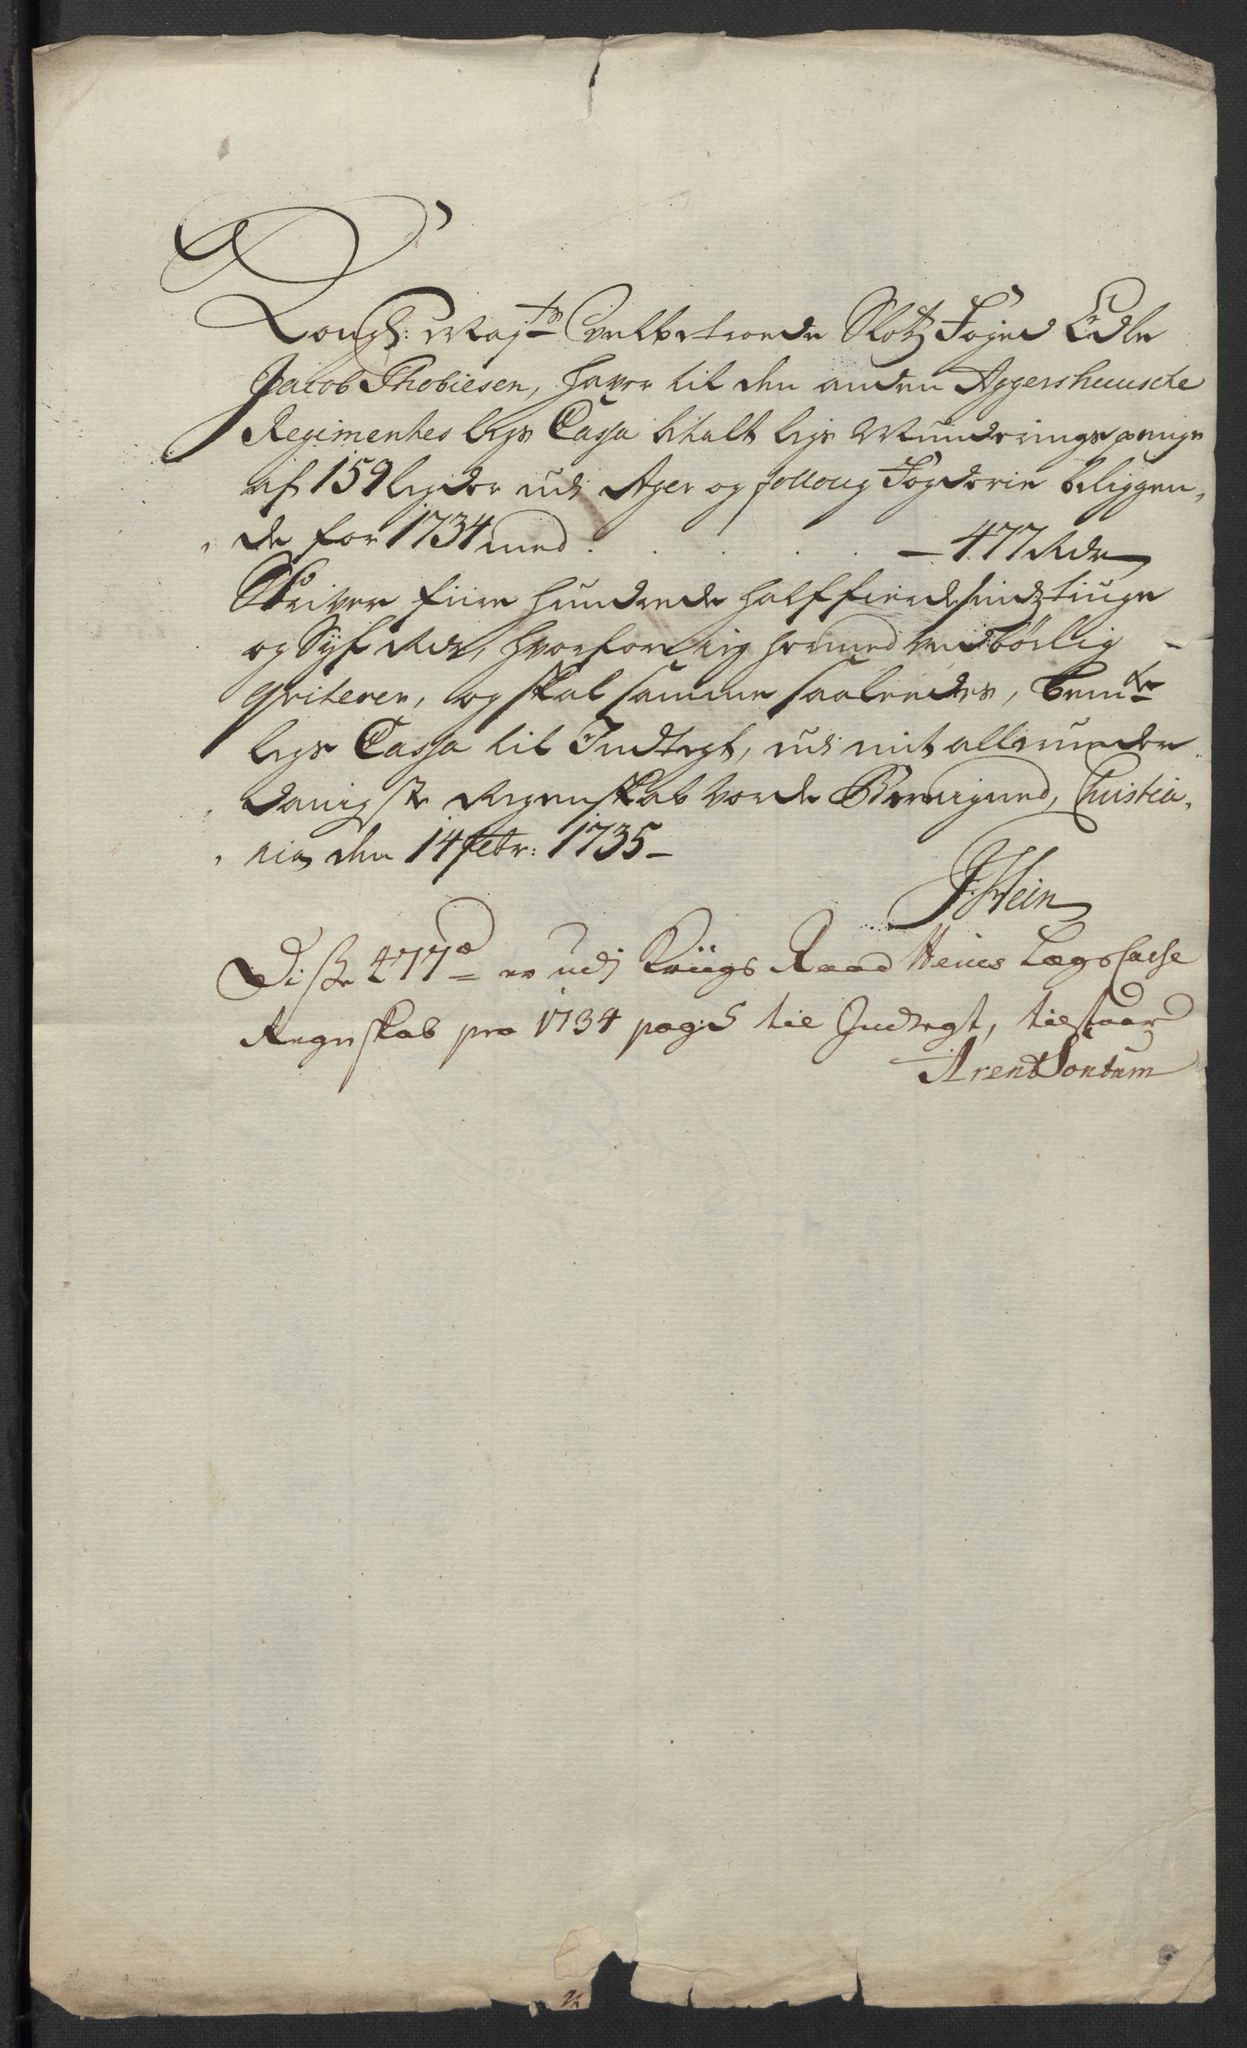 Kongl: Maj:ts Velbetroede Slotz Foged Edle
Jacob Thobiesen, haver til den anden Aggershuusche
Regimentes legs Cassa betalt legs Munderings penge
af 159 legder udi Ager og folloug Fogderie beliggen,
de for 1734 med . . . . . — 477 Rdr
Skriver fiire hundrede halffierdesindztiuge
og Syf Rdr, hvorfore ieg hermed ved børlig
qviterer, og skal samme saaledes, bem:te
legs Cassa til Indtegt, udi mit allerunder
danigste Regenskab vorde Beregned, Christia,
nia den 14 febr: 1735 –
J. Hein
Disse 477 rd er udj Kriigs Raad Heins Lægs Casse
Regnskab pro 1734 pag: 5 til Indtegt, tilstaar
Arent Sontum